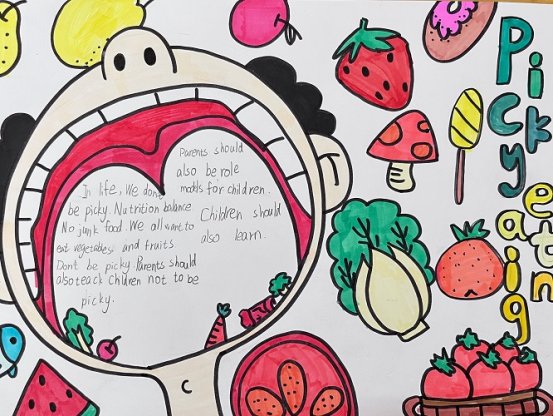 Picky
eating
In life, We dont
be picky. Nutrition balance
No junk food. We all want to
eat vegetables and fruits
Dont be picky. Parents should
also teack Children not to be
picky.
Parents should
also be role
models for children.
Children should
also learn.